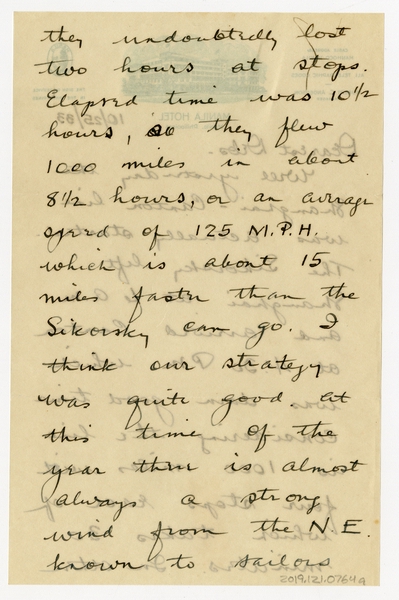 they undoubtedly lost
two hours at stops.
Elapsed time was 10 1/2
hours, so they flew
1000 miles in about
8 1/2 hours, or an average
speed of 125 M.P.H.
which is about 15
miles faster than the
Sikorsky can go. I
think our strategy
was quite good. At
this time of the
year there is almost
always a strong
wind from the N.E.
known to sailors
2019.121.0764a